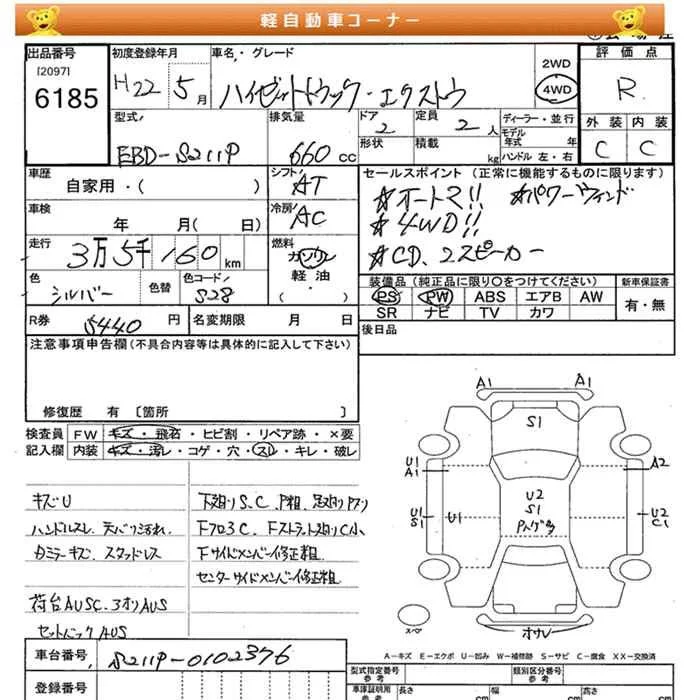 軽自動車コーナー
出品番号
[2097]
6185
初度登録年月
H22 5月
車名・グレード
ハイゼットトラック・エクストラ
2WD
4WD
評価点
R
外装 内装
C C
型式
EBD-S211P
排気量
660cc
ドア
2
定員
2人
形状
積載
kg
ディーラー・並行
モデル年式 年
ハンドル 左・右
車歴
自家用・( )
シフト
AT
車検
年 月(日)
冷房
AC
走行
3万5千160km
燃料
ガソリン
軽油
・( )
色
シルバー
色替
色コード
S28
セールスポイント(正常に機能するものに限ります)
☆オートマ!! ☆パワーウィンド
☆4WD!!
☆CD、2スピーカー
装備品(純正品に限り○をつけてください)
PS PW ABS エアB AW
SR ナビ TV カワ
新車保証書
有・無
R券 5440円
名変期限 月 日
後日品
注意事項申告欄(不具合内容等は具体的に記入して下さい)
修復歴 有〔箇所 〕
検査員
記入欄
FW キズ・飛石・ヒビ割・リペア跡・×要
内装 キズ・汚レ・コゲ・穴・スレ・キレ・破レ
キズU
ハンドルスレ、天バリ汚れ
カミラーキズ、スタッドレス
荷台AUSC、3オリAUS
セットバックAUS
下廻りS、C、P粗、足廻りPアリ
Fフロ3C、Fストラット廻りC小、
Fサイドメンバー修正粗
センターサイドメンバー修正粗
A1 A1
S1
U1
A1
A2
U1
S1
U1
U2
S1
Pハゲ多
U2
C1
スペア
オサレ
A-キズ E-エクボ U-凹み W-補修跡 S-サビ C-腐食 XX-交換済
車台番号 S211P-0102376
登録番号
型式指定番号
類別区分番号
車庫証明用
参考
長さ cm
幅 cm
高さ cm